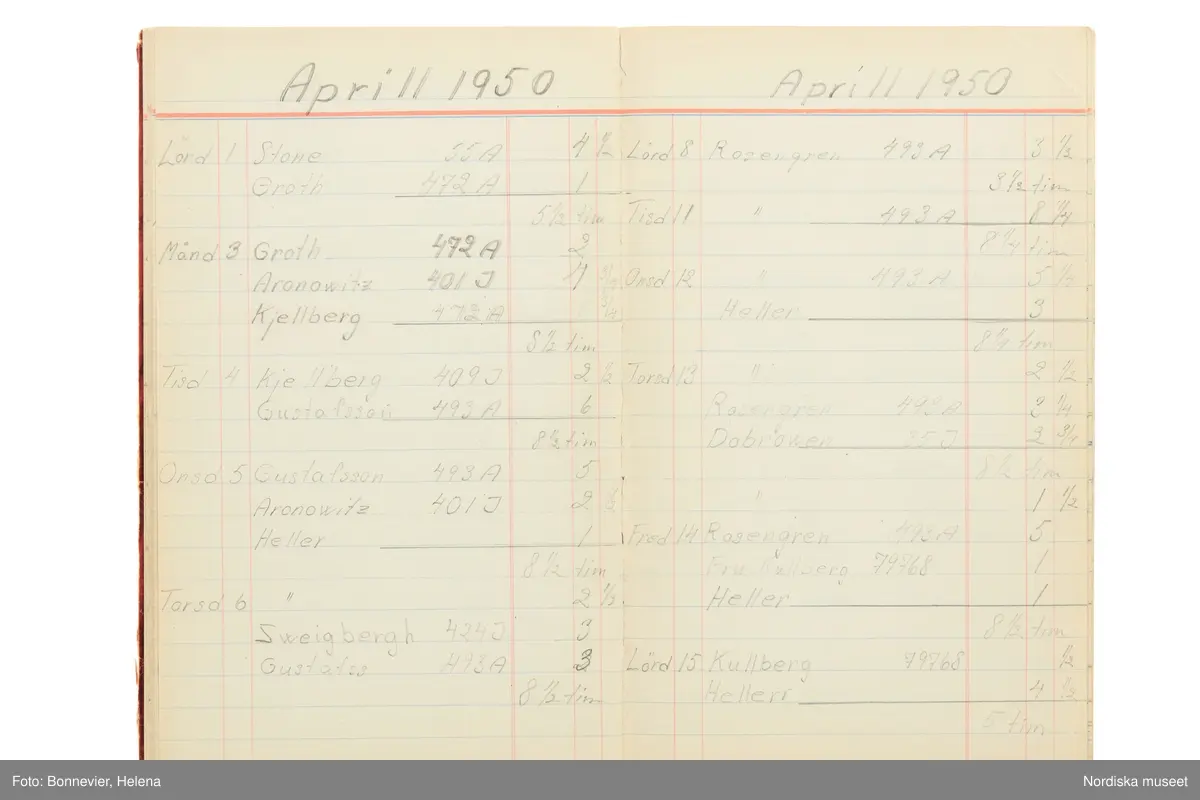 Aprill 1950
Lörd 1 Stone 55 A 4 1/2
Groth 472 A 1
5 1/2 tim
Månd 3 Groth 472 A 2
Aronowitz 401 J
Kjellberg 472 A
8 1/2 tim
Tisd 4 Kjellberg 409 J 2 1/2
Gustafsson 493 A 6
8 1/2 tim
Onsd 5 Gustafsson 493 A 5
Aronowitz 401 J 2 1/2
Heller 1
8 1/2 tim
Torsd 6 " 2 1/2
Sweigbergh 424 J 3
Gustafss 493 A 3
8 1/2 tim
Aprill 1950
Lörd 8 Rosengren 493 A 3 1/2
3 1/2 tim
Tisd 11 " 493 A 8 1/4
8 1/4 tim
Onsd 12 " 493 A 5 1/2
Heller 3
tim
Torsd 13 " 2 1/2
Rosengren 493 A 2 1/4
Dobrowen 35 J 2 3/4
8 1/2 tim
" 1 1/2
Fred 14 Rosengren 493 A 5
Fru Kullberg 79768 1
Heller 1
8 1/2 tim
Lörd 15 Kullberg 79768 1/2
Hellerr 4 1/2
5 tim
Foto: Bonnevier, Helena
Nordiska museet